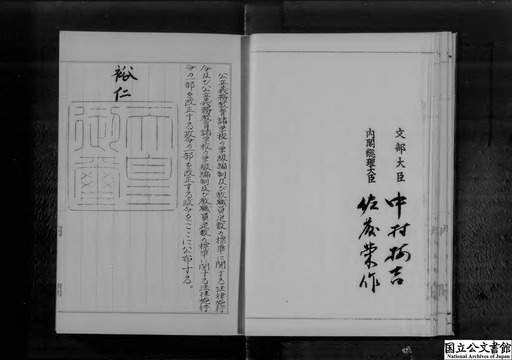 公立義務教育諸学校の学級編制及び教職員定数の標準に関する法律施行
令及び公立義務教育諸学校の学級編制及び教職員定数の標準に関する法律施行
令の一部を改正する政令の一部を改正する政令をここに公布する。
裕仁
天皇
御璽
文部大臣
中村梅吉
内閣総理大臣
佐藤榮作
国立公文書館
National Archives of Japan